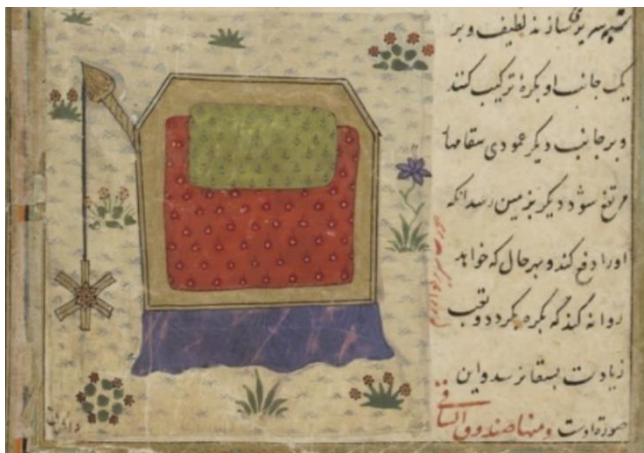 سازند لطیف و بر
یک جانب او بکره ترکیب کنند
و بر جانب دیگر عمودی
مرتفع شود دیگر بزمین رسد آنکه
او را دفع کند و بهر حال که خواهد
روانه کند که بکره بگردد و تعب
زیادت بسقا نرسد و این
صورة اوست ومنها صندوق الساقی